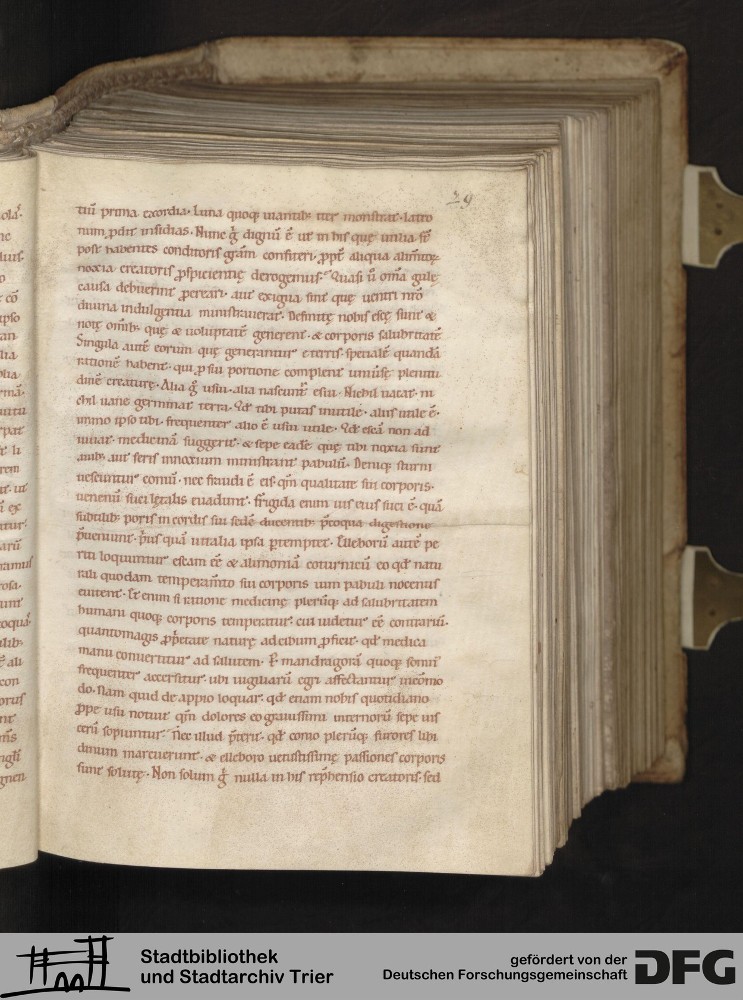 29
tiũ prima exordia. Luna quoq; uiantib; iter monstrat. latro
num ꝓdit insidias. Nunc g̃ dignũ ẽ ut in his quę utilia st̃
post habentes conditoris gr̃am confiteri. ꝓpt̃ aliqua alim̃toꝝ
noxia creatoris ꝓspicientię derogemus. Quasi ũ om̃a gulę
causa debuerint ꝓcreari. aut exigua sint que uentri nr̃o
diuina indulgentia ministrauerat. Definitę nobis escę sunt &
notę om̃ib; quę & uoluptatẽ generent. & corporis salubritatẽ
Singula autẽ eorum quę generantur e terris speciale quandã
rationẽ habent. qui ꝓ sui portione complent uniuersę plenitu
dinẽ creaturę. Alia g̃ usui. alia nascunt̃ esui. Nichil uacat. ni
chil uane germinat terra. Qd̃ tibi putas inutile. aliis utile ẽ.
immo ipso tibi. frequenter alio ẽ usui utile. Qd̃ escã non ad
iuuat. medicinã suggerit. & sepe eadẽ quę tibi noxia sunt
auib; aut feris innoxium ministrant pabulũ. Deniq; sturni
uescuntur coniũ. nec fraudi ẽ eis. qm̃ qualitate sui corporis.
uenenũ suci lętalis euadunt. frigida enim uis eius suci ẽ. quã
subtilib; poris in cordis sui sedẽ ducentib; p̃coqua digestione
p̃ueniunt. p̃us quã uitalia ipsa ꝑtemptet. Elleborũ autẽ pe
riti loquuntur escam eẽ & alimoniã coturnicũ eo qd̃ natu
rali quodam temperam̃to sui corporis uim pabuli nocentis
euitent. Et enim si ratione medicinę plerũq; ad salubritatem
humani quoq; corporis temperatur. cui uidetur eẽ contrariũ.
quantomagis ꝓprietate naturę ad cibum ꝓficit. qd̃ medica
manu conuertitur ad salutem. Per mandragorã quoq; somn'
frequenter accersitur. ubi uigiliarũ egri affectantur incõmo
do. Nam quid de appio loquar. qd̃ etiam nobis quotidiano
ꝓpe usu notuit qm̃ dolores eo grauissimi internorũ sepe uis
cerũ sopiuntur. Nec illud p̃terit. qd̃ conio plerũq; furores libi
dinum marcuerunt. & elleboro uetustissimę passiones corporis
sunt solutę. Non solum g̃ nulla in his rep̃hensio creatoris. sed
Stadtbibliothek
und Stadtarchiv Trier
gefördert von der
Deutschen Forschungsgemeinschaft
DFG